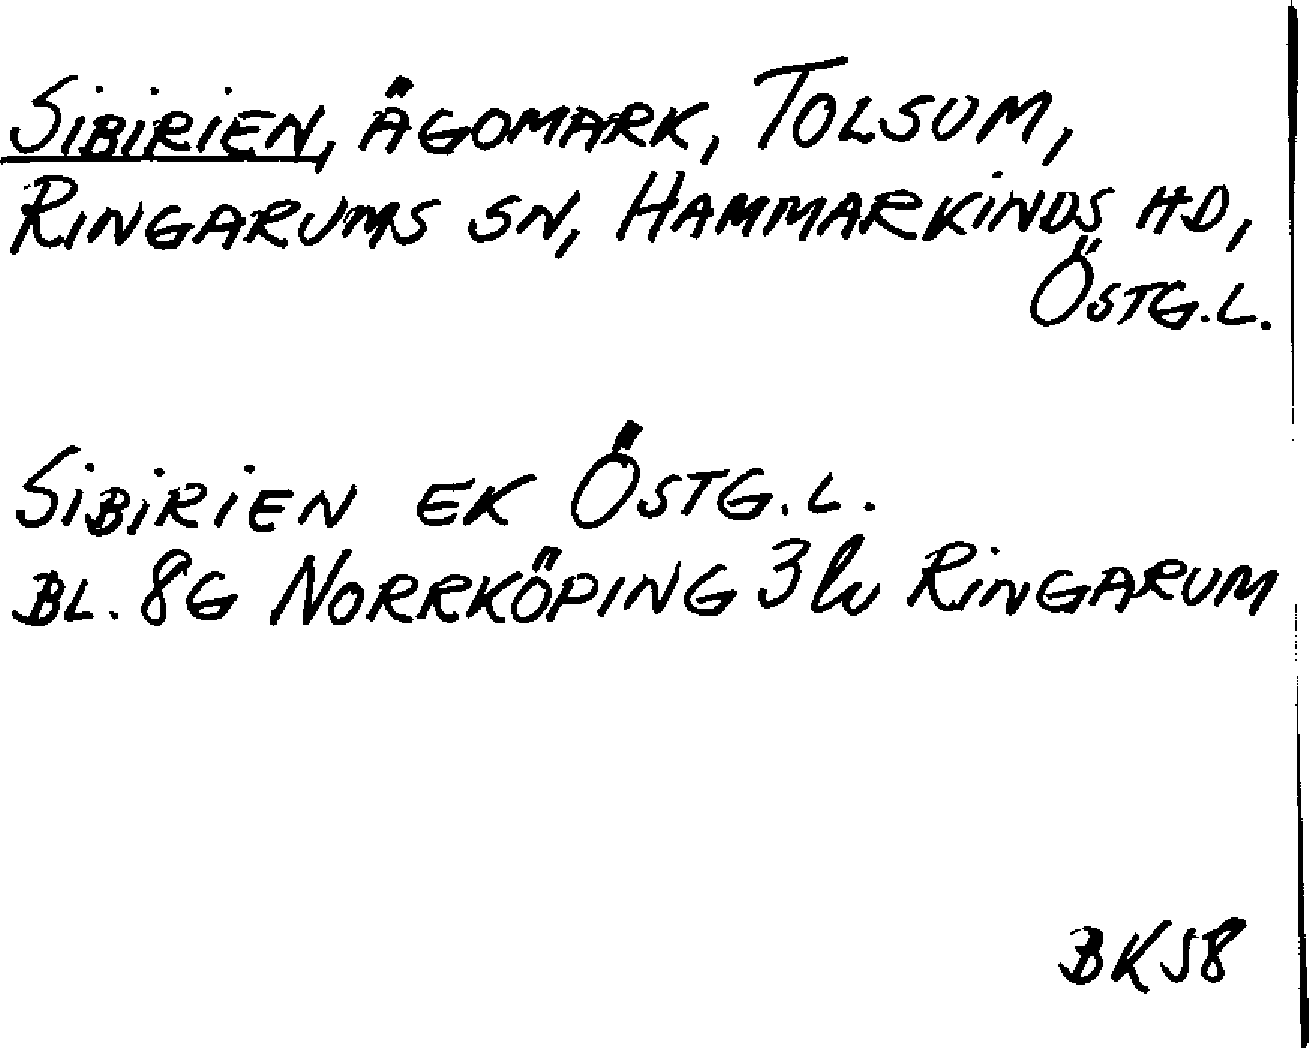 SIBIRIEN, ÄGOMARK, TOLSUM,
RINGARUMS SN, HAMMARKINDS HD,
ÖSTG.L.
SIBIRIEN EK ÖSTG.L.
BL. 8G NORRKÖPING 3 lv RINGARUM
BK58